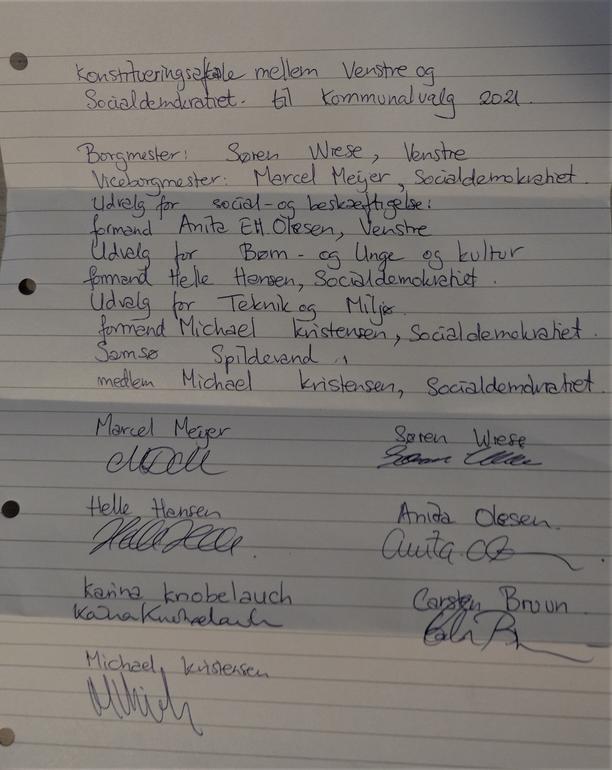 Konstitueringsaftale mellem Venstre og
Socialdemokratiet. til Kommunalvalg 2021.
Borgmester: Søren Wiese, Venstre
Viceborgmester: Marcel Meijer, Socialdemokratiet.
Udvalg for social-og beskæftigelse:
formand Anita Ett. Olesen, Venstre
Udvalg for Børn- og Unge og kultur
formand Helle Hansen, Socialdemokratiet.
Udvalg for Teknik og Miljø.
formand Michael Kristensen, Socialdemokratiet.
Samsø Spildevand
medlem Michael Kristensen, Socialdemokratiet.
Marcel Meijer Søren Wiese
Helle Hansen Anita Olesen.
Anita
Karina Knobelauch Carsten Bruun
Karina Knobelauch
Michael Kristensen